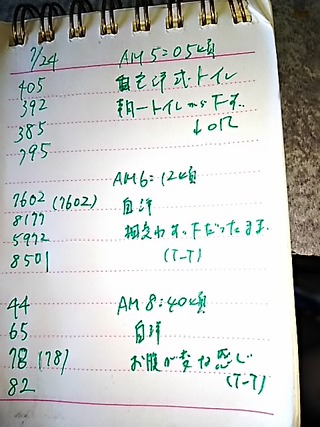 7/24 AM5:05頃
405 自宅洋式トイレ
392 朝一トイレから下す。
385 ↓OR
795
AM6:12頃
7602 (7602) 自洋
8177 相変わらず下だったまま.
5972 (T-T)
8501
44 AM8:40頃
65 自洋
78 (78) お腹が変な感じ
82 (T-T)